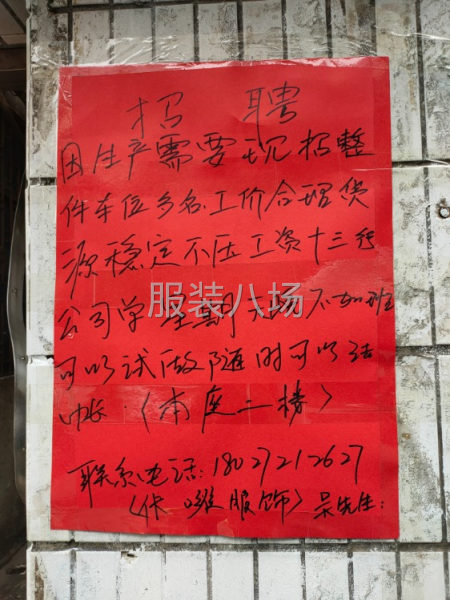 招 聘
因生产需要现招整
件车位多名.工价合理货
源稳定不压工资十三行
公司单星期天晚不加班
可以试做随时可以结
帐.(本座二楼)
联系电话:18027212627
服饰)吴先生:
服装八场